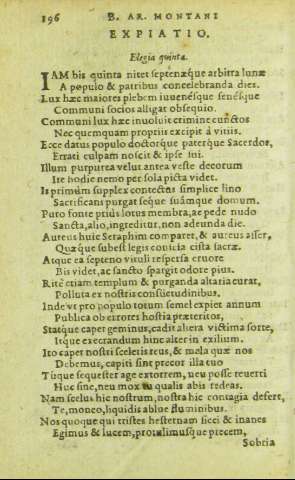 196 B. AR. MONTANI
EXPIATIO.
Elegia quinta.
IAM bis quinta nitet septenæque arbitra lunæ
A populo & patribus concelebranda dies.
Lux hæc maiores plebem iuuenésque senésque
Communi socios alligat obsequio.
Communi lux hæc inuoluit crimine cunctos
Nec quemquam proprijs excipit à vitijs.
Ecce datus populo doctorque paterque Sacerdos,
Errati culpam noscit & ipse sui.
Illum purpurea velut antea veste decorum
Ire hodie nemo per sola picta videt.
Is primùm supplex contectus simplice lino
Sacrificans purgat seque suámque domum.
Puto fonte priùs lotus membra, ac pede nudo
Sancta, alio, ingreditur, non adeunda die.
Aureus huic Seraphim comparet, & aureus asser,
Quæque subest legis conscia cista sacræ.
Atque ea septeno vituli respersa cruore
Bis videt, ac sancto spargit odore pius.
Ritè etiam templum & purganda altaria curat,
Polluta ex nostris consuetudinibus.
Inde vt pro populo totum semel expiet annum
Publica ob errores hostia præteritos,
Statque caper geminus, cadit altera victima sorte,
Itque execrandum hinc alter in exilium.
Ito caper nostri sceleris reus, & mala quæ nos
Debemus, capiti sint precor illa tuo
Túque sequester age extorrem, neu posse reuerti
Huc sine, neu mox tu qualis abis redeas.
Nam scelus hic nostrum, nostra hic contagia defert,
Te, moneo, liquidis ablue fluminibus.
Nos quoque qui tristes hesternam sicci & inanes
Egimus & lucem, protulimusque precem,
Sobria